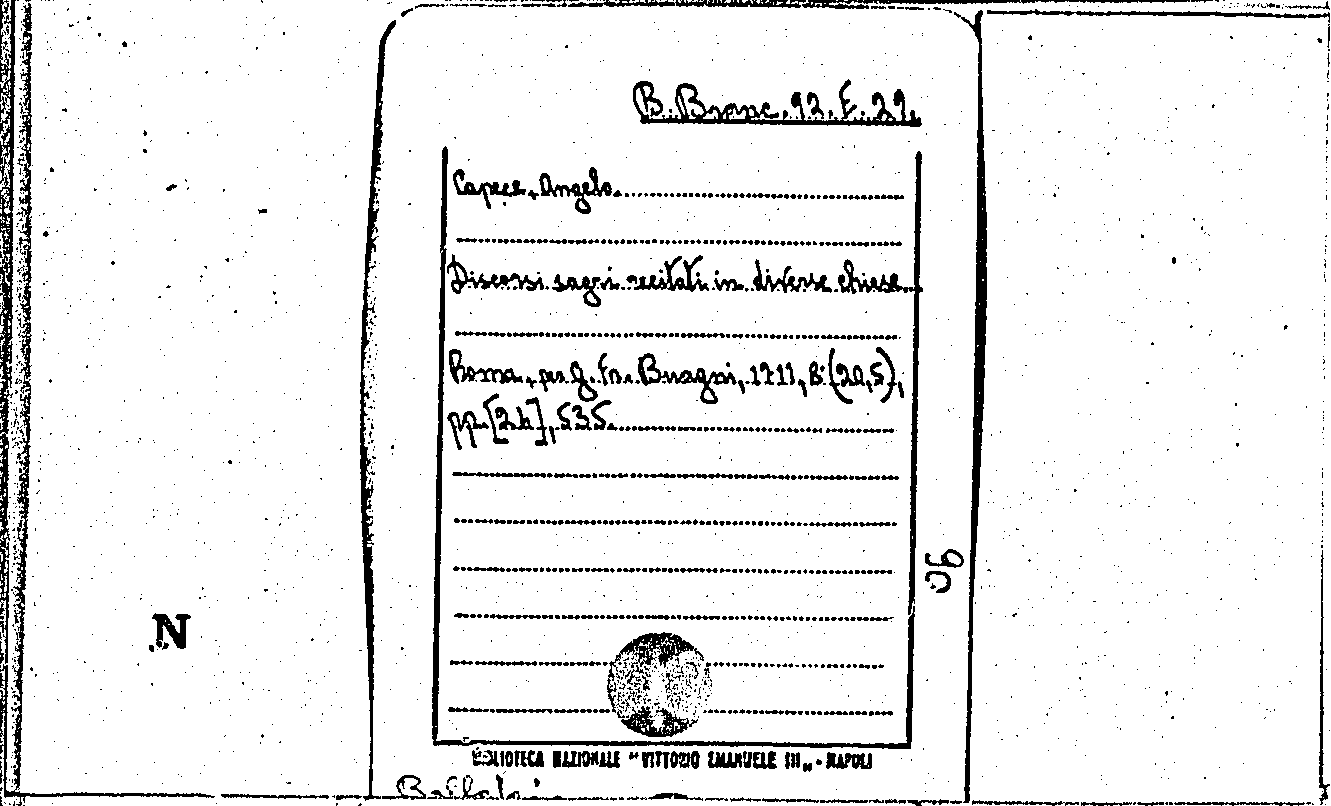 B. Branc. 92. E. 29.
Capece, Angelo.
Discorsi sagri recitati in diverse chiese.
Roma, per G. Fr. Buagni, 1711, 8° (20,5),
pp. [24], 535.
90
N
BIBLIOTECA NAZIONALE "VITTORIO EMANUELE III„ - NAPOLI